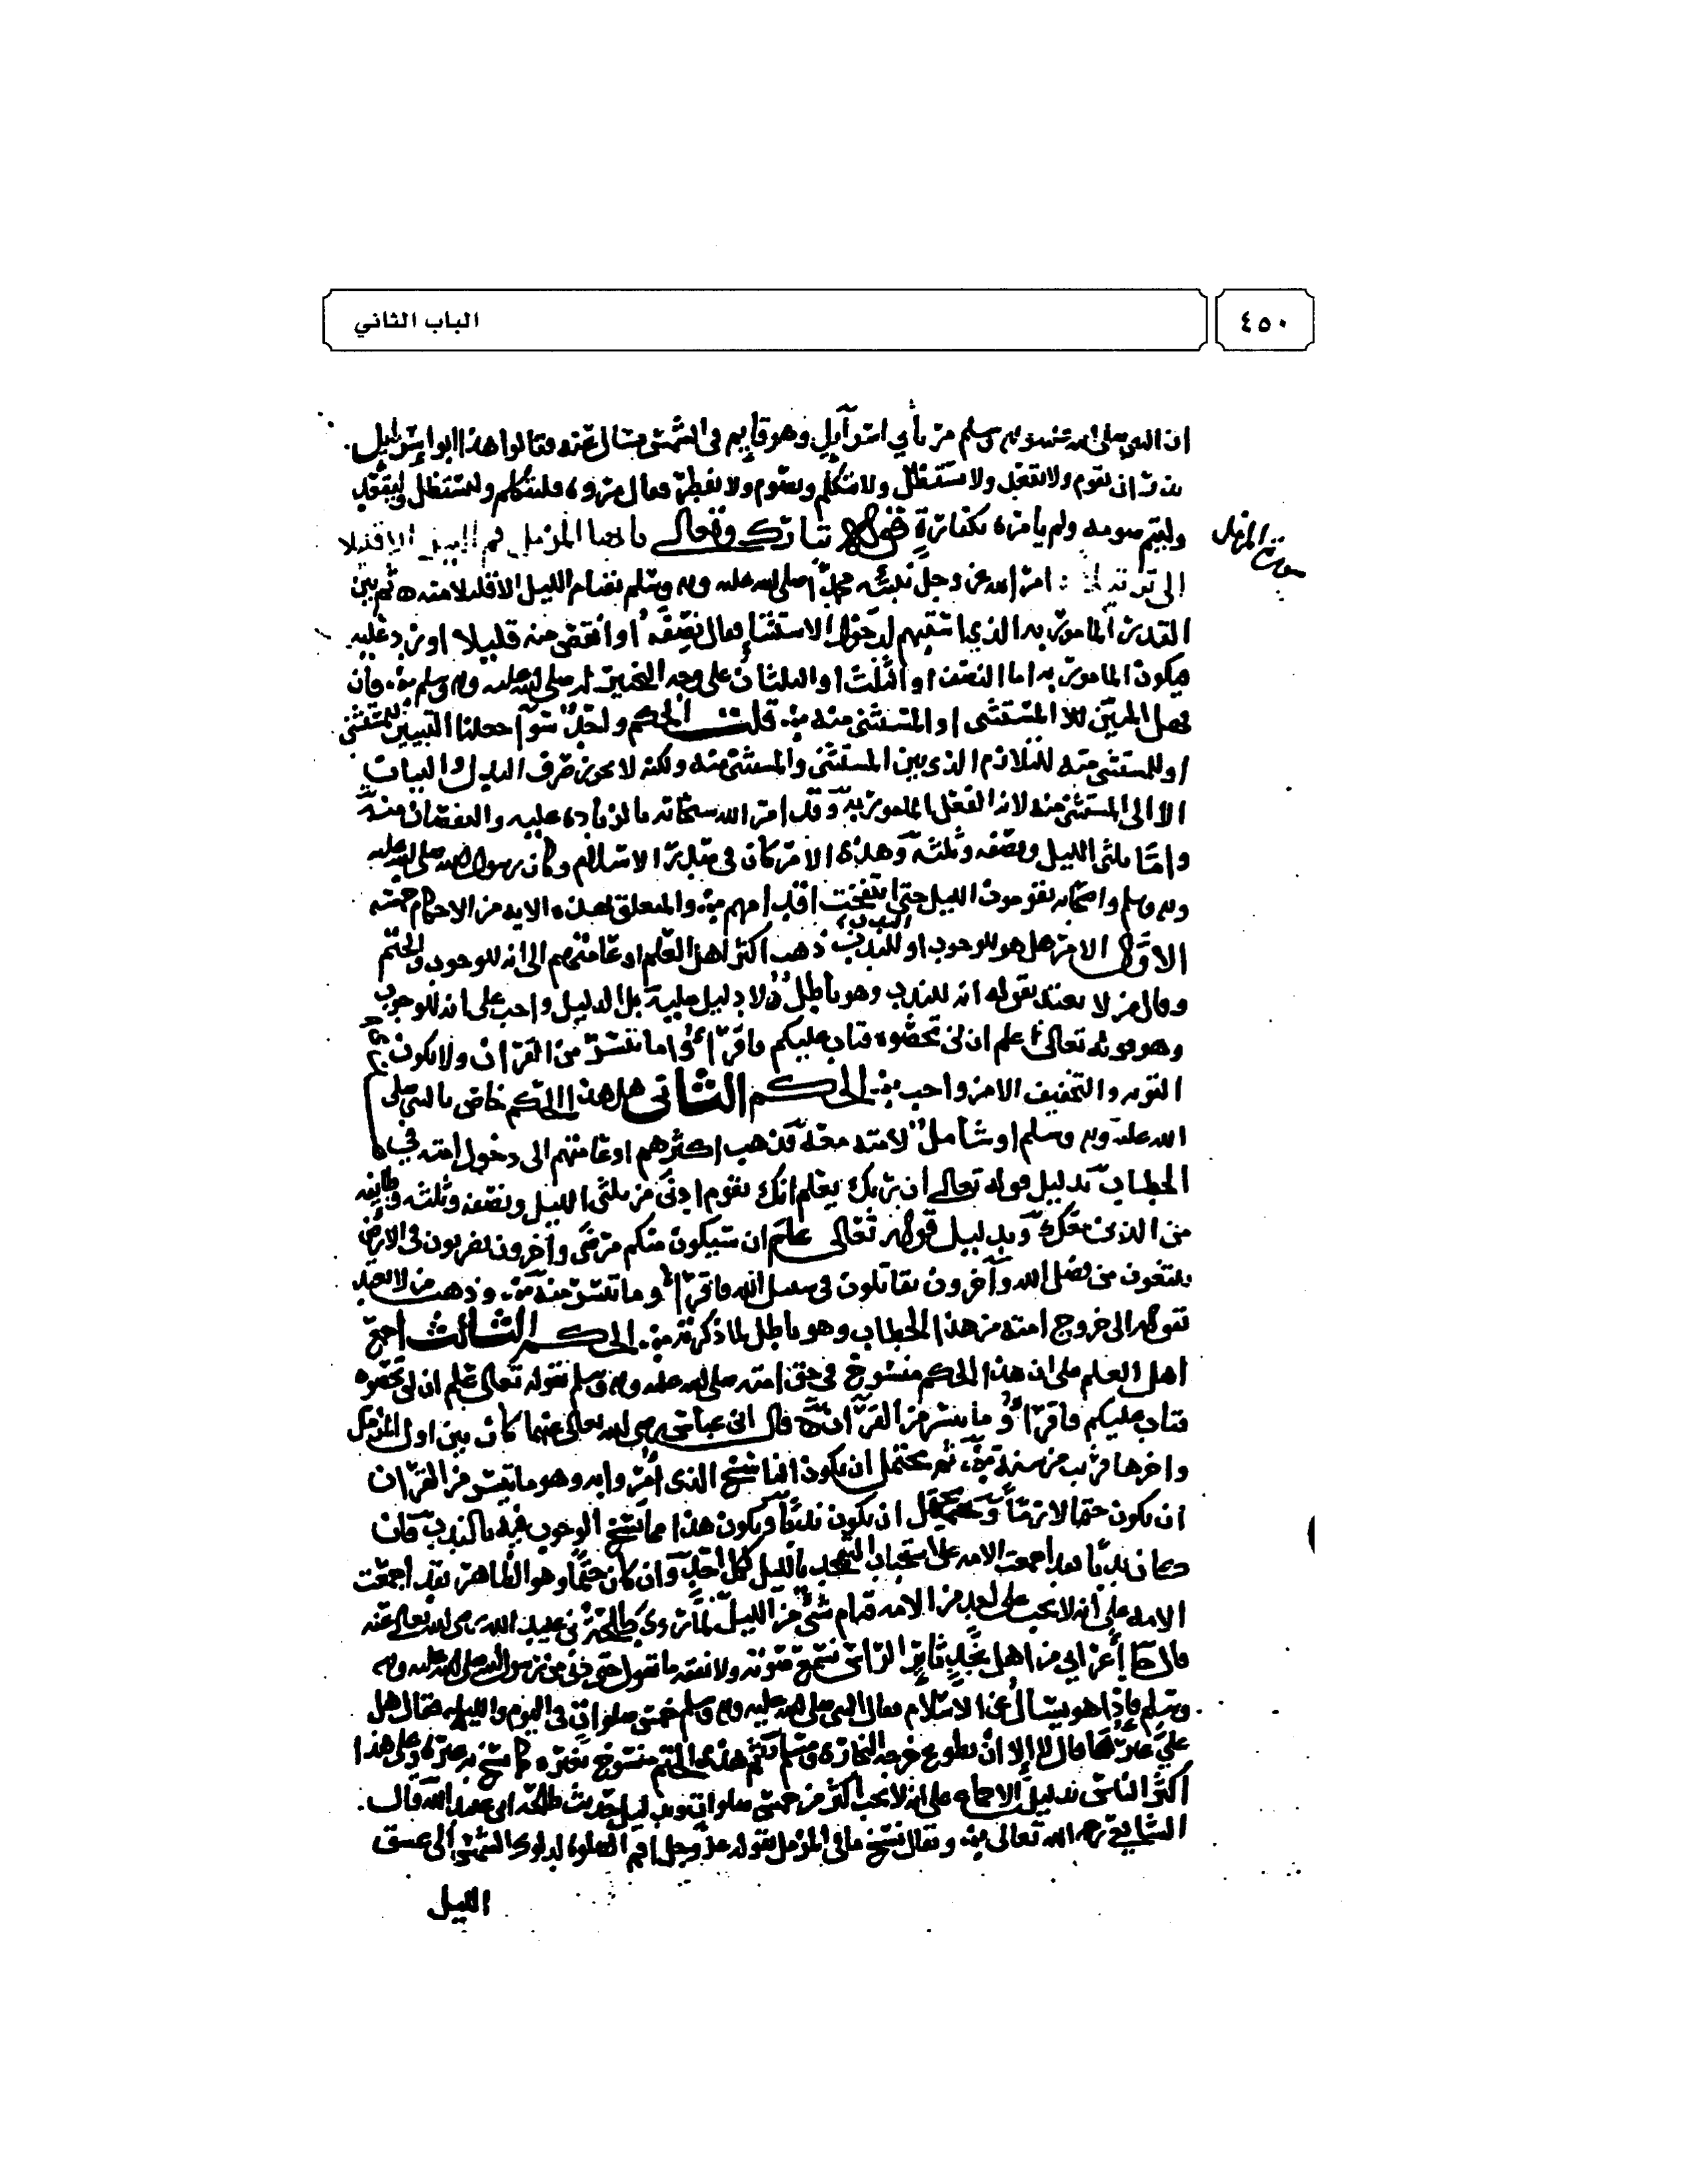 ٤٥٠
الباب الثاني
ان النبي صلى الله عليه وسلم مر بأبي اسرآييل وهو قايم في الشمس فسال عنه فقالوا هذا ابو اسرآييل
نذر ان يقوم ولا يقعد ولا يستظل ولا يتكلم ويصوم ولا يفطر فقال مروه فليتكلم وليستظل وليقعد
وليتم صومه ولم يامره بكفارة قوله تبارك وتعالى يا ايها المزمل قم الليل الا قليلا
سورة المزمل
الى ترتيلا امر الله عز وجل نبيه محمدا صلى الله عليه وسلم بقيام الليل الا قليلا منه ثم بين
القدر المامور به الذي استبهم لدخول الاستثنا فقال نصفه او انقص منه قليلا او زد عليه
فيكون المامور به اما النصف او الثلث او الثلثان على وجه التخيير له صلى الله عليه وسلم فان
قيل المبين للا المستثنى او المستثنى منه قلت الحكم واحد سوآ جعلنا التبيين للمستثنى
او للمستثنى منه للتلازم الذي بين المستثنى والمستثنى منه ولكنه لا يجوز صرف البدل والبيان
الا الى المستثنى منه لانه الفعل المامور به وقد امر الله سبحانه بالزياده عليه والنقصان منه
وامتا ثلثي الليل ونصفه وثلثه وهذا الامر كان في مبتدا الاسلام وكان رسول الله صلى الله عليه
وسلم واصحابه يقومون الليل حتى انتفخت اقدامهم والمتعلق بهذه الايه من الاحكام خمسه
الاول الامر هل هو للوجوب او للندب ذهب اكثر اهل العلم او عامتهم الى انه للوجوب والحتم
وقال من لا يعتد بقوله انه للندب وهو باطل لا دليل عليه بل الدليل واجب على انه للوجوب
وهو قوله تعالى علم ان لن تحصوه فتاب عليكم فاقرأوا ما تيسر من القرآن ولا يكون
التوبه والتخفيف الا من واجب الحكم الثاني هل هذا الحكم خاص بالنبي صلى
الله عليه وسلم او شامل لامته معه فذهب اكثرهم او عامتهم الى دخول امته في
الخطاب بدليل قوله تعالى ان ربك يعلم انك تقوم ادنى من ثلثي الليل ونصفه وثلثه وطايفه
من الذين معك وبدليل قوله تعالى علم ان سيكون منكم مرضى وآخرون يضربون في الارض
يبتغون من فضل الله وآخرون يقاتلون في سبيل الله فاقرأوا ما تيسر منه وذهب من لا يعتد
بقوله الى خروج امته من هذا الخطاب وهو باطل لما ذكرته الحكم الثالث اجمع
اهل العلم على ان هذا الحكم منسوخ في حق امته صلى الله عليه وسلم بقوله تعالى علم ان لن تحصوه
فتاب عليكم فاقرأوا ما تيسر من القرآن قال ابن عباس رضى الله تعالى عنهما كان بين اول المزمل
واخرها قريب من سنة ثم يحتمل ان يكون الناسخ الذي أمروا به وهو ما تيسر من القرآن
ان يكون حتما لازما ويحتمل ان يكون ندبا ويكون هذا مما نسخ الوجوب فيه بالندب فان
كان ندبا فقد اجمعت الامه على استحباب التهجد بالليل لكل احد وان كان حتما وهو الظاهر فقد اجمعت
الامه على انه لا يجب على احد من الامه قيام شئ من الليل لما روى طلحة بن عبيد الله رضى الله تعالى عنه
قال جآ أعرابي من اهل نجد ثاير الراس نسمع صوته ولا نفقه ما يقول حتى دنى من رسول الله صلى الله عليه
وسلم فاذا هو يسال عن الاسلام فقال النبي صلى الله عليه وسلم خمس صلوات في اليوم والليله فقال هل
علي غيرها قال لا إلا ان تطوع خرجه البخاري ومسلم ثم هذا الحتم منسوخ بغيره كما نسخ به غيره وعلى هذا
أكثر الناس بدليل الاجماع على انه لا يجب اكثر من خمس صلوات وبدليل حديث طلحة ابن عبيد الله قال
الشافعي رحمه الله تعالى ويقال نسخ ما في المزمل بقوله عز وجل اقم الصلوة لدلوك الشمس الى غسق
الليل